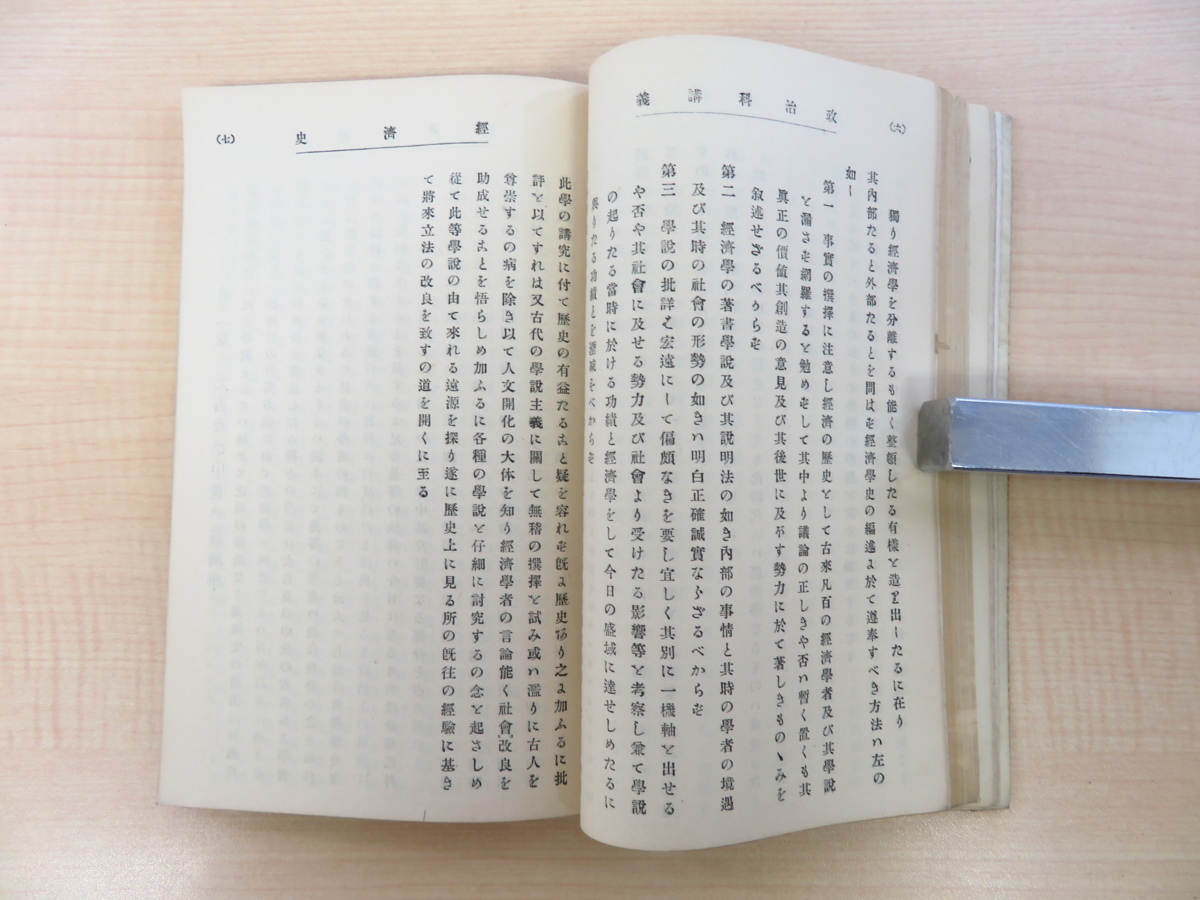 (六)
政治科講義
獨り經濟學を分離するも能く整頓したる有樣を造り出したるに在り
其內部たると外部たるとを問はず經濟學史の編述に於て遵奉すべき方法ハ左の
如し
第一 事實の撰擇に注意し經濟の歷史として古來凡百の經濟學者及び其學說
を漏さず網羅するを勉めずして其中より議論の正しきや否ハ暫く置くも其
眞正の價値其創造の意見及び其後世に及ぼす勢力に於て著しきものゝみを
叙述せざるべからず
第二 經濟學の著書學說及び其說明法の如き內部の事情と其時の學者の境遇
及び其時の社會の形勢の如きハ明白正確誠實ならざるべからず
第三 學說の批評は宏遠にして偏頗なきを要し宜しく其別に一機軸を出せる
や否や其社會に及せる勢力及び社會より受けたる影響等を考察し兼て學說
の起りたる當時に於ける功績と經濟學をして今日の盛域に達せしめたるに
與りたる功績とを
經濟史
(七)
此學の講究に付て歷史の有益たること疑を容れず旣に歷史あり之に加ふるに批
評を以てすれは又古代の學說主義に關して無稽の撰擇を試み或ハ濫りに古人を
尊崇するの病を除き以て人文開化の大体を知り經濟學者の言論能く社會改良を
助成せることを悟らしめ加ふるに各種の學說を仔細に討究するの念を起さしめ
從て此等學說の由て來れる遠源を探り遂に歷史上に見る所の旣往の經驗に基き
て將來立法の改良を致すの道を開くに至る